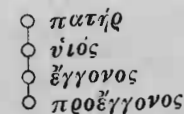 πατήρ
ὑιός
ἔγγονος
προἔγγονος